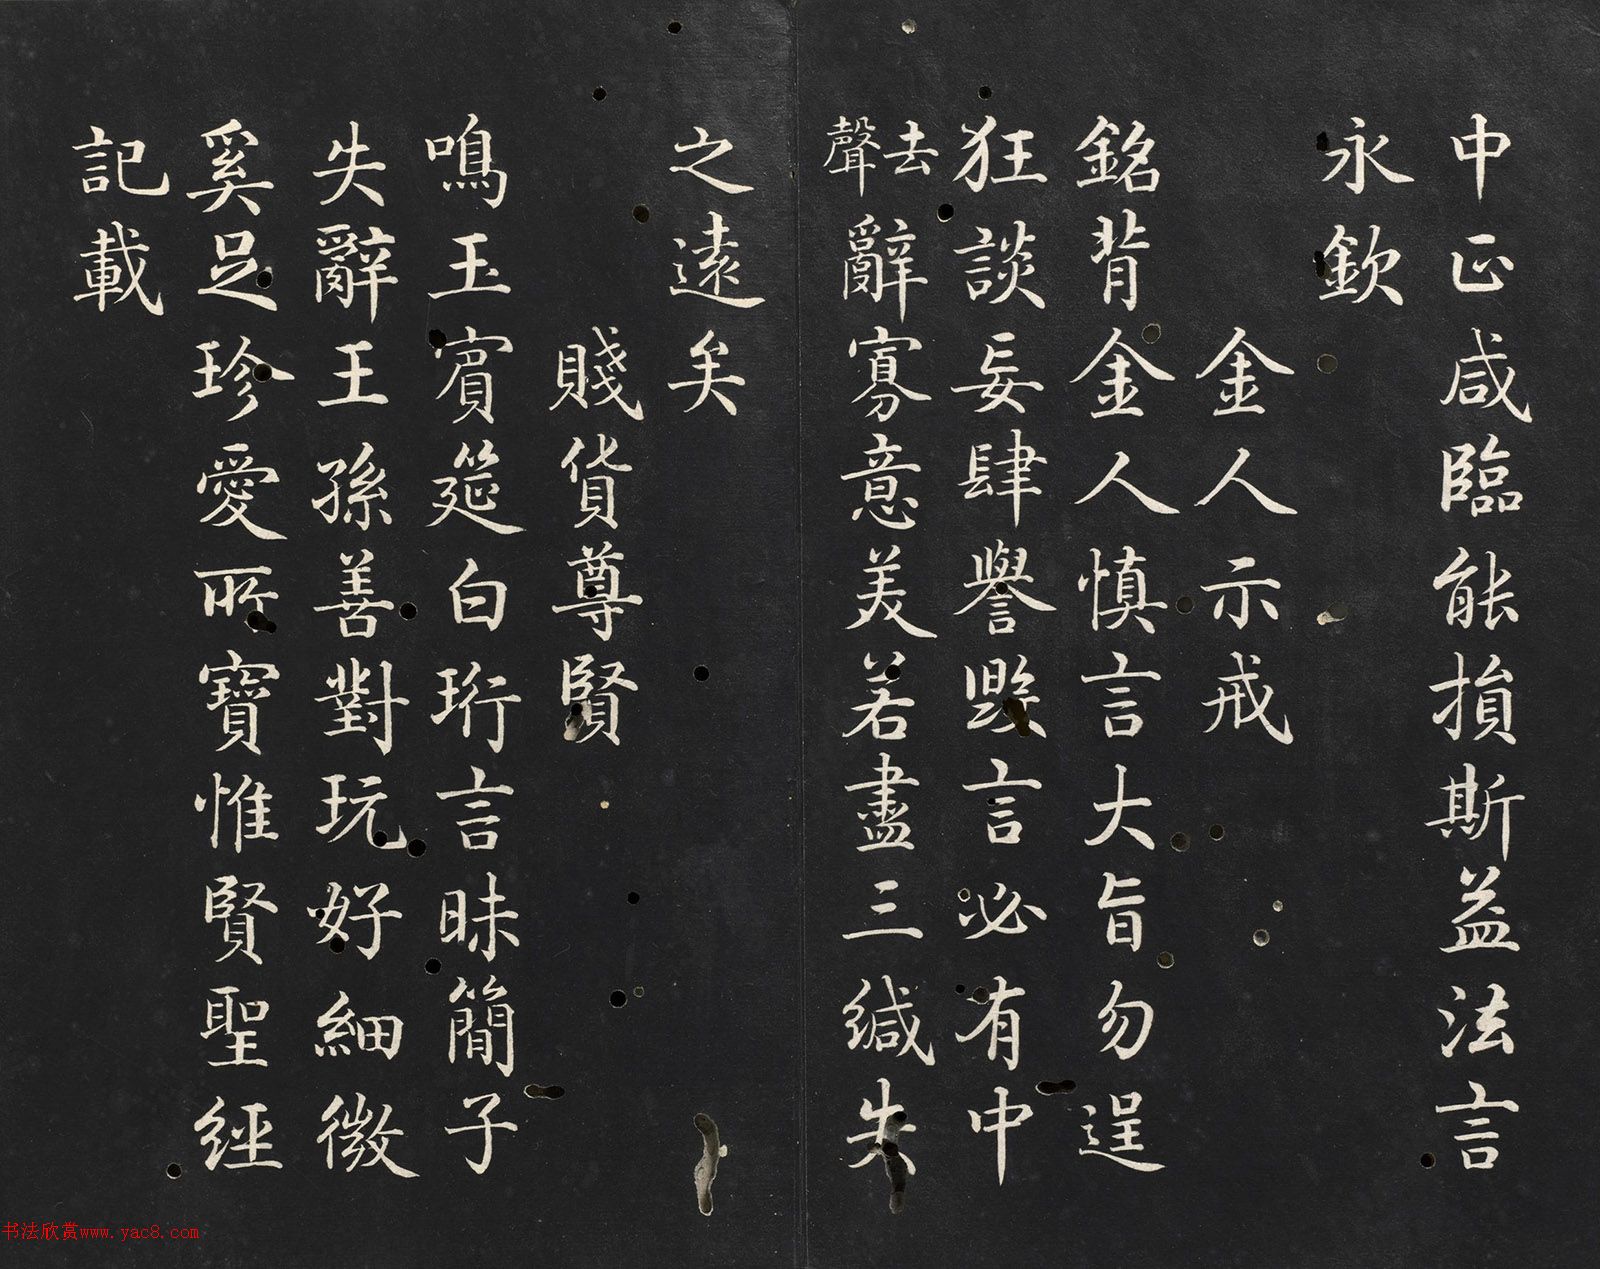 中正咸臨能損斯益法言
永欽
金人示戒
銘背金人慎言大旨勿逞
狂談妄肆譽毀言必有中
去聲辭寡意美若盡三緘失
之遠矣
賤貨尊賢
鳴玉賓筵白珩言昧簡子
失辭王孫善對玩好細微
奚足珍愛所寶惟賢聖經
記載
书法欣赏www.yac8.com